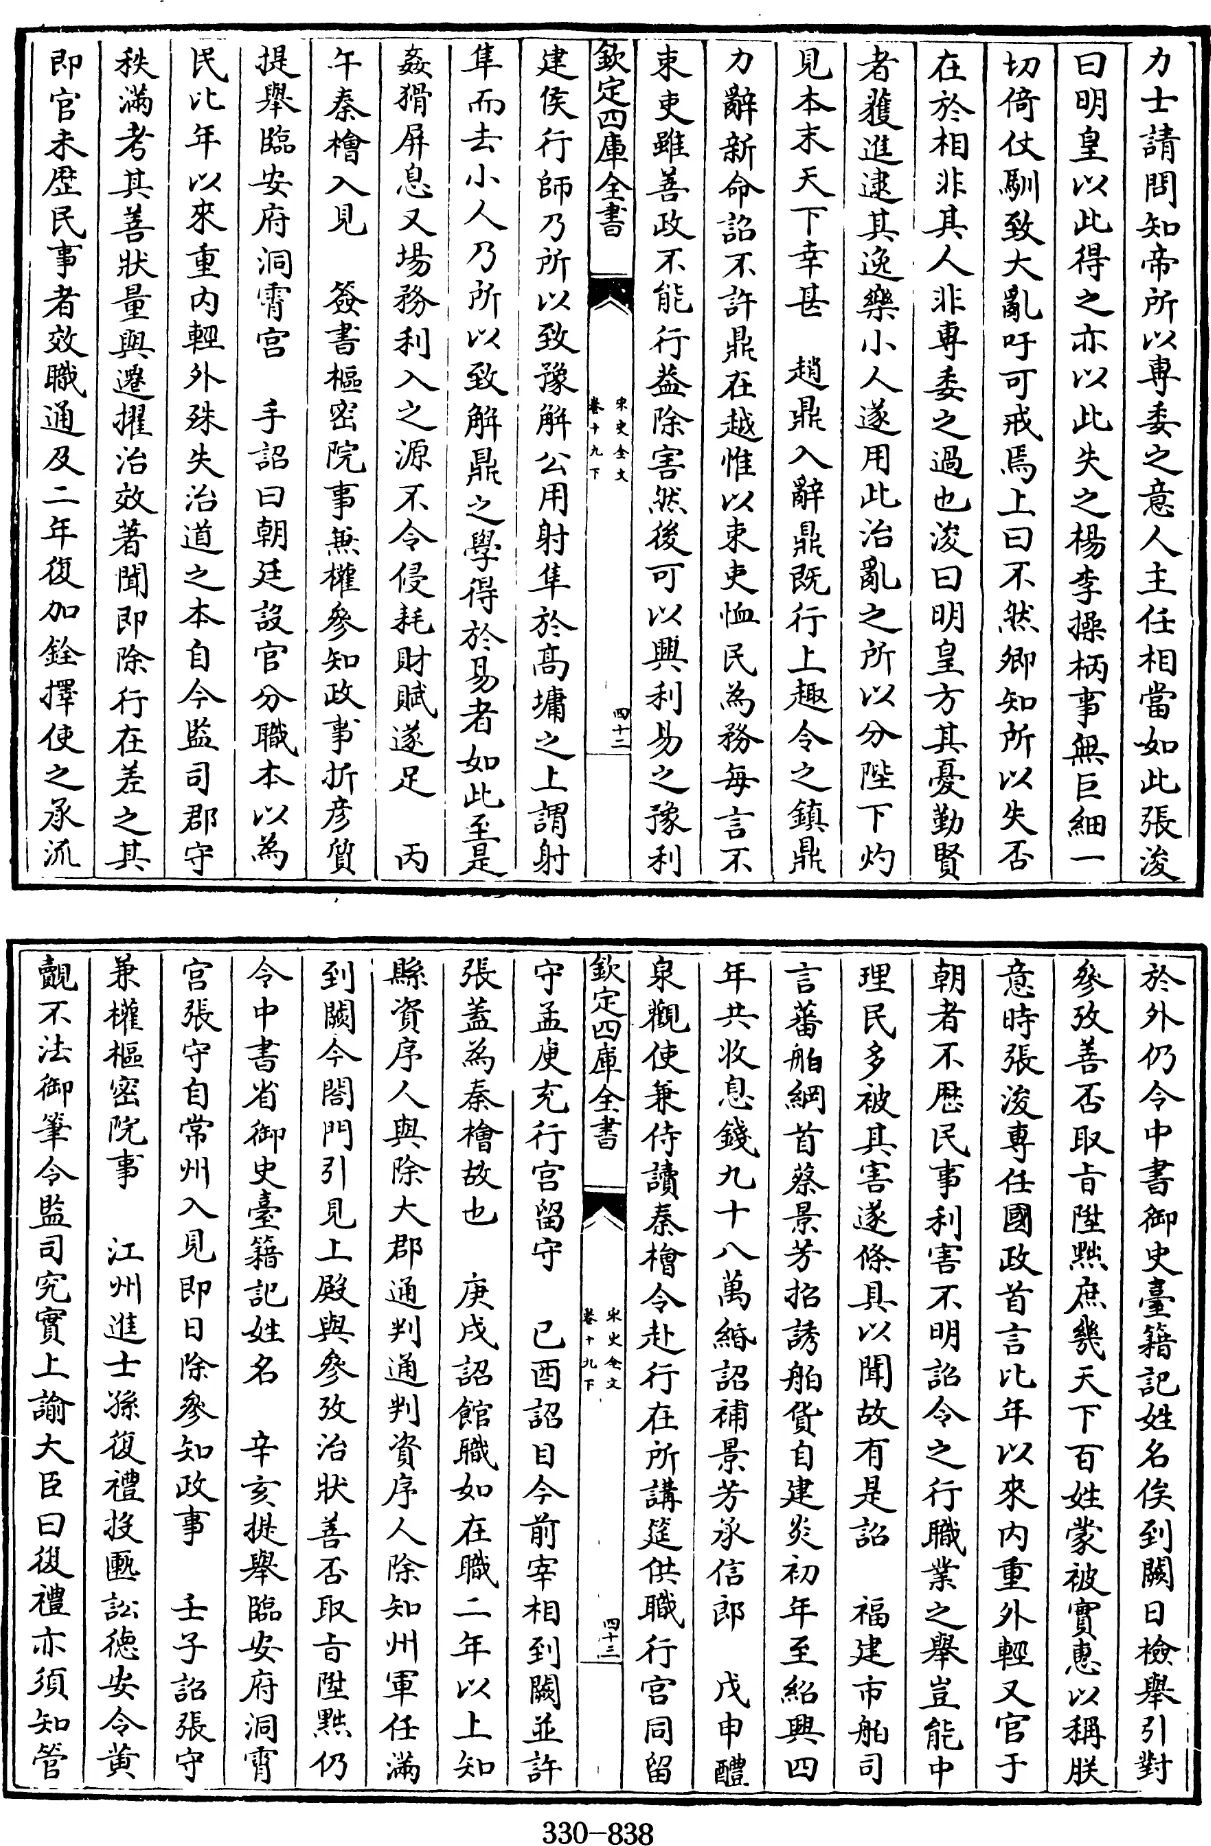 力士請問知帝所以専委之意人主任相當如此張浚
曰明皇以此得之亦以此失之楊李操柄事無巨細一
切倚仗馴致大亂吁可戒焉上曰不然卿知所以失否
在於相非其人非専委之過也浚曰明皇方其憂勤賢
者獲進逮其逸樂小人遂用此治亂之所以分陛下灼
見本末天下幸甚　趙鼎入辭鼎既行上趣令之鎮鼎
力辭新命詔不許鼎在越惟以束吏恤民為務每言不
束吏雖善政不能行益除害然後可以興利易之豫利
欽定四庫全書　宋史全文卷十九下　四十二
建侯行師乃所以致豫解公用射隼於高墉之上謂射
隼而去小人乃所以致解鼎之學得於易者如此至是
姦猾屏息又場務利入之源不令侵耗財賦遂足　丙
午秦檜入見　簽書樞密院事兼權參知政事折彦質
提舉臨安府洞霄宫　手詔曰朝廷設官分職本以為
民比年以來重内輕外殊失治道之本自今監司郡守
秩滿考其善狀量與遷擢治效著聞即除行在差之其
即官未歴民事者效職通及二年復加銓擇使之承流
於外仍令中書御史臺籍記姓名俟到闕日檢舉引對
參攷善否取旨陞黜庶幾天下百姓蒙被實惠以稱朕
意時張浚專任國政首言比年以來内重外輕又官于
朝者不歴民事利害不明詔令之行職業之舉豈能中
理民多被其害遂條具以聞故有是詔　福建市舶司
言蕃舶綱首蔡景芳招誘舶貨自建炎初年至紹興四
年共收息錢九十八萬緡詔補景芳承信郎　戊申醴
泉觀使兼侍讀秦檜令赴行在所講筵供職行宫同留
欽定四庫全書　宋史全文卷十九下　四十三
守孟庾充行宫留守　己酉詔自今前宰相到闕並許
張蓋為秦檜故也　庚戌詔館職如在職二年以上知
縣資序人與除大郡通判通判資序人除知州軍任滿
到闕令閤門引見上殿與參攷治狀善否取旨陞黜仍
令中書省御史臺籍記姓名　辛亥提舉臨安府洞霄
宫張守自常州入見即日除參知政事　壬子詔張守
兼權樞密院事　江州進士孫復禮投匭訟德安令黄
覿不法御筆令監司究實上諭大臣曰復禮亦須知管
330-838